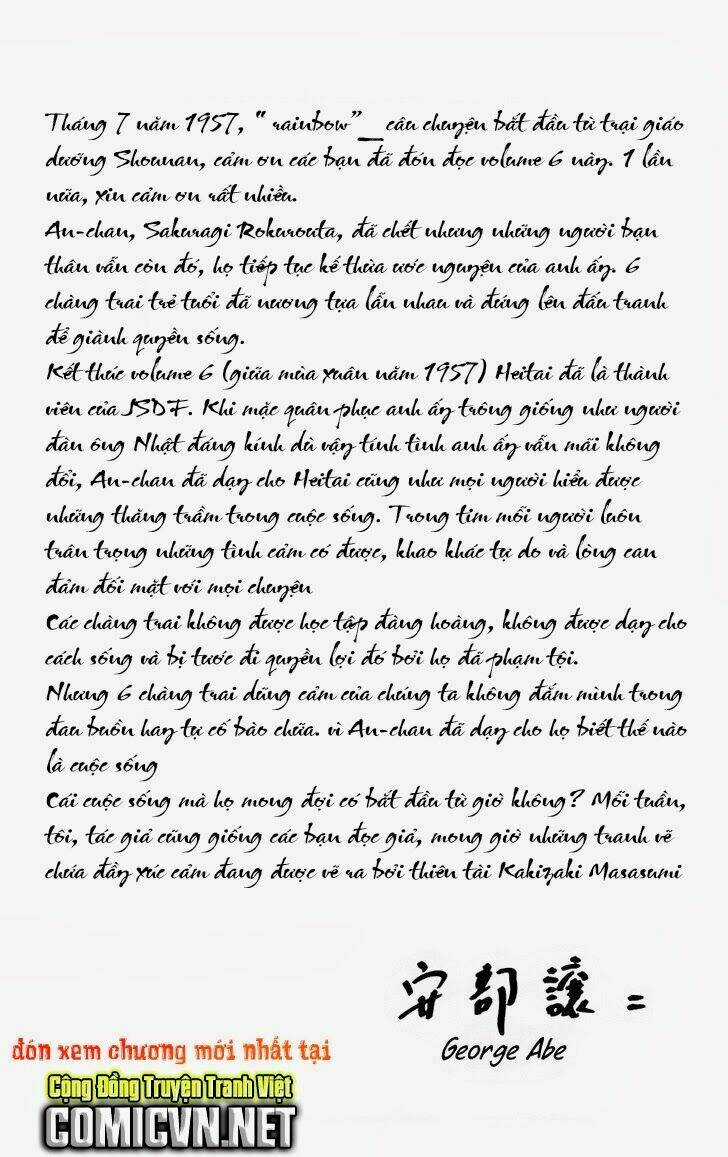 Tháng 7 năm 1957, “ rainbow”_ câu chuyện bắt đầu từ trại giáo
dưỡng Shounan, cảm ơn các bạn đã đón đọc volume 6 này. 1 lần
nữa, xin cảm ơn rất nhiều.
An-chan, Sakuragi Rokurouta, đã chết nhưng những người bạn
thân vẫn còn đó, họ tiếp tục kế thừa ước nguyện của anh ấy. 6
chàng trai trẻ tuổi đã nương tựa lẫn nhau và đứng lên đấu tranh
để giành quyền sống.
Kết thúc volume 6 (giữa mùa xuân năm 1957) Heitai đã là thành
viên của JSDF. Khi mặc quân phục anh ấy trông giống như người
đàn ông Nhật đáng kính dù vậy tính tình anh ấy vẫn mãi không
đổi, An-chan đã dạy cho Heitai cũng như mọi người hiểu được
những thăng trầm trong cuộc sống. Trong tim mỗi người luôn
trân trọng những tình cảm có được, khao khác tự do và lòng can
đảm đối mặt với mọi chuyện
Các chàng trai không được học tập đàng hoàng, không được dạy cho
cách sống và bị tước đi quyền lợi đó bởi họ đã phạm tội.
Nhưng 6 chàng trai dũng cảm của chúng ta không đắm mình trong
đau buồn hay tự cố bào chữa. vì An-chan đã dạy cho họ biết thế nào
là cuộc sống
Cái cuộc sống mà họ mong đợi có bắt đầu từ giờ không? Mỗi tuần,
tôi, tác giả cũng giống các bạn đọc giả, mong giờ những tranh vẽ
chứa đầy xúc cảm đang được vẽ ra bởi thiên tài Kakizaki Masasumi
安部譲二
George Abe
đón xem chương mới nhất tại
Cộng Đồng Truyện Tranh Việt
COMICVN.NET